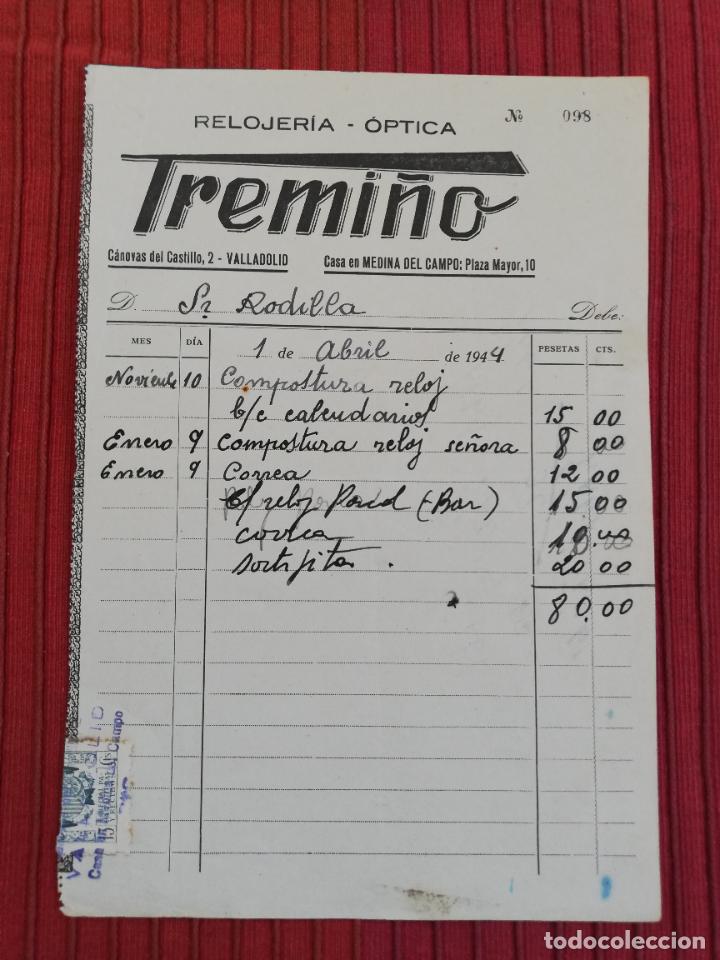 RELOJERÍA - ÓPTICA
Nº 098
Tremiño
Cánovas del Castillo, 2 - VALLADOLID
Casa en MEDINA DEL CAMPO: Plaza Mayor, 10
D. Sr Rodilla Debe:
MES DÍA 1 de Abril de 1944 PESETAS CTS.
10 Compostura reloj
b/c calendarios 15 00
Enero 9 Compostura reloj señora 8 00
Enero 9 Correa 12 00
reloj (Bar) 15.00
correa 10
sortijita . 20 00
80.00
Campo
Casa
15
todocoleccion
todocoleccion.net